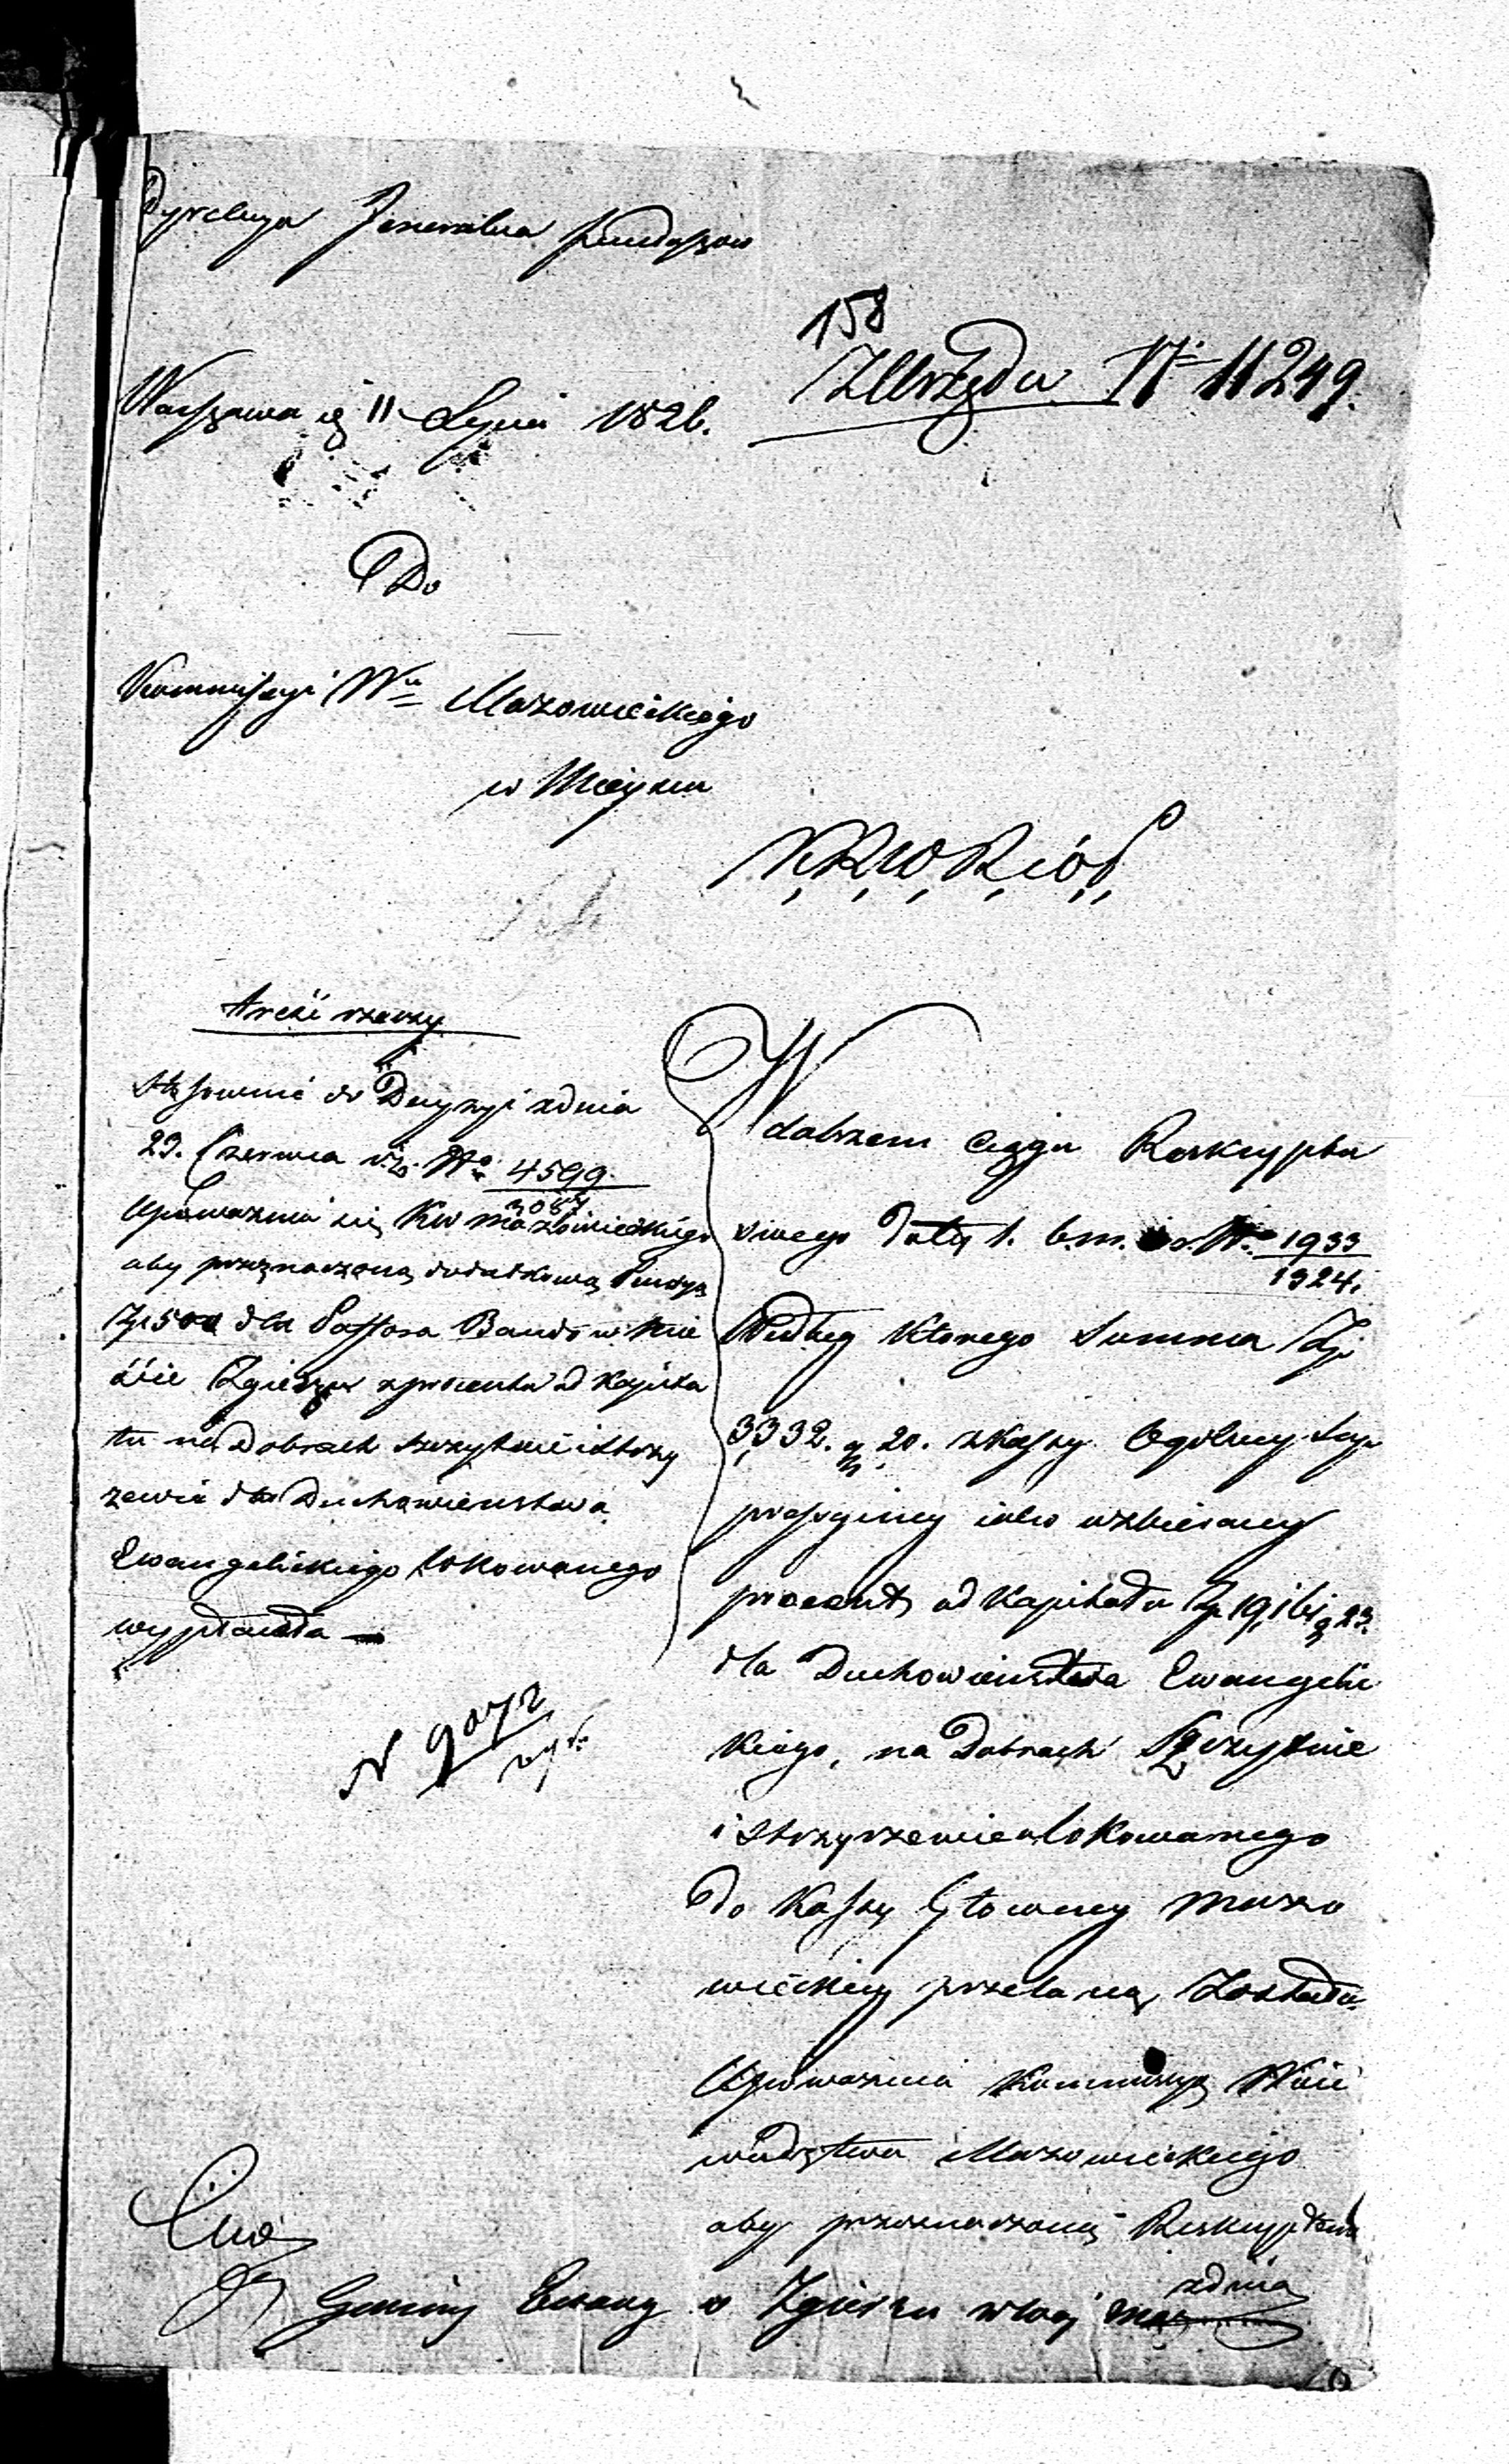 Dyrekcya Jeneralna Funduszow
158
Z Urzędu N° 11249.
Warszawa d. 11 Lipca 1826.
Do
Kommissyi Wa Mazowieckiego
w Mieyscu
K. R. W. R. i O. P.
treść rzeczy
Stosownie do Decyzyi z dnia
23. Czerwca r. b. N° 4599.
3087
upoważnia się KW Mazowieckiego
aby przeznaczoną dodatkową Pensyą
Zp 500 dla Pastora Bando w mie
ście Zgierzu z procentu od Kapita
łu na Dobrach Szczytnie i Strzy
żewie dla Duchowieństwa
Ewangelickiego lokowanego
wypłacała
N 9072
W dalszem ciągu Reskryptu
swego daty 1. b. m. i r. N° 1933
1924.
Według którego Summa Zp
3332. g 20. z Kassy Ogólney Sup
pressyiney iako uzbierany
procent, od Kapitału Zp 19,161 g 23.
dla Duchowieństwa Ewangelic
kiego, na Dobrach Szczytnie
i Strzyrzewie ulokowanego
do Kassy Głowney Mazo
wieckiey przelaną Została
Upoważnia Kommissyą Woie
wództwa Mazowieckiego
aby przeznaczoną Reskryptem
z dnia
Gminy Ewang w Zgierzu w Woj